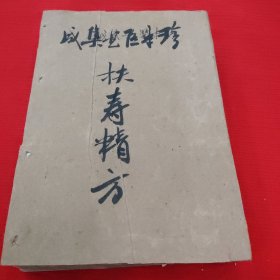 珍本医書集成
扶寿精方